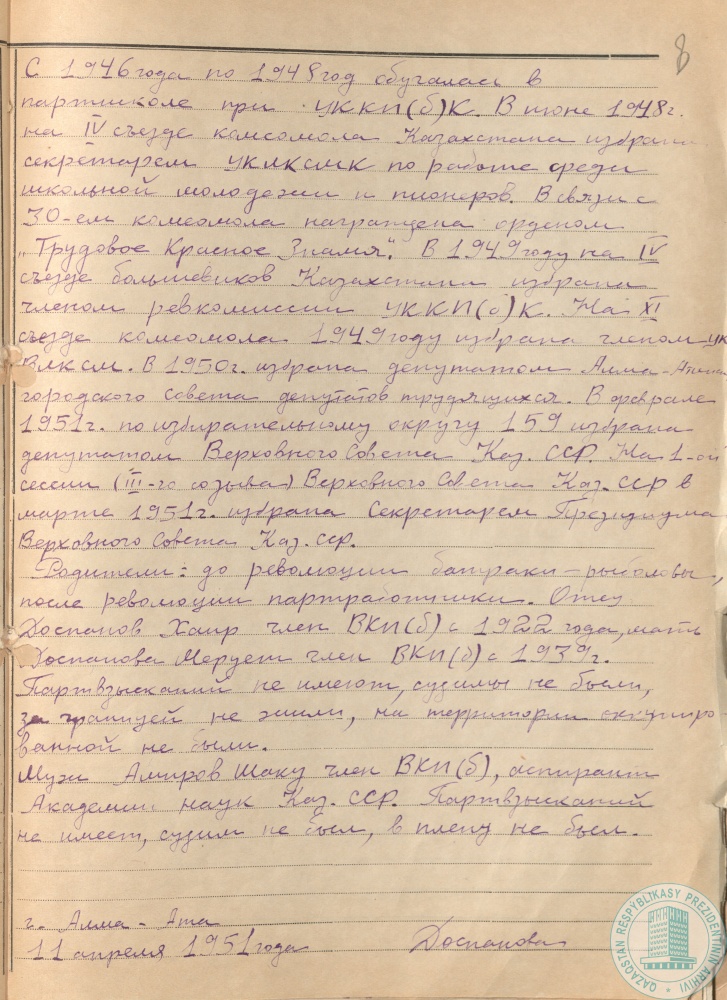 8
С 1946 года по 1948 год обучалась в
партшколе при ЦККП(б)К. В июне 1948г.
на IV съезде комсомола Казахстана избрана
секретарем ЦКЛКСМК по работе среди
школьной молодежи и пионеров. В связи с
30-ем комсомола награждена орденом
„Трудовое Красное Знамя". В 1949 году на IV
съезде большевиков Казахстана избрана
членом ревкомиссии ЦККП(б)К. На XI
съезде комсомола 1949 году избрана членом ЦК
ВЛКСМ. В 1950г. избрана депутатом Алма-Атин
городского совета депутатов трудящихся. В феврале
1951г. по избирательному округу 159 избрана
депутатом Верховного Совета Каз. ССР. На 1-ой
сессии (III-го созыва) Верховного Совета Каз. ССР в
марте 1951г. избрана Секретарем Президиума
Верховного Совета Каз. ССР.
Родители: до революции батраки – рыболовы,
после революции партработники. Отец
Доспанов Хаир член ВКП(б) с 1922 года, мать
Доспанова Мерует член ВКП(б) с 1939г.
Партвзысканий не имеют, судимы не были,
за границей не жили, на территории оккупиро
ванной не были.
Муж Амиров Шаку член ВКП(б), аспирант
Академии наук Каз. ССР. Партвзысканий
не имеет, судим не был, в плену не был.
г. Алма-Ата
11 апреля 1951 года Доспанова
QAZAQSTAN RESPÝBLIKASY PREZIDENTINIŃ ARHIVI